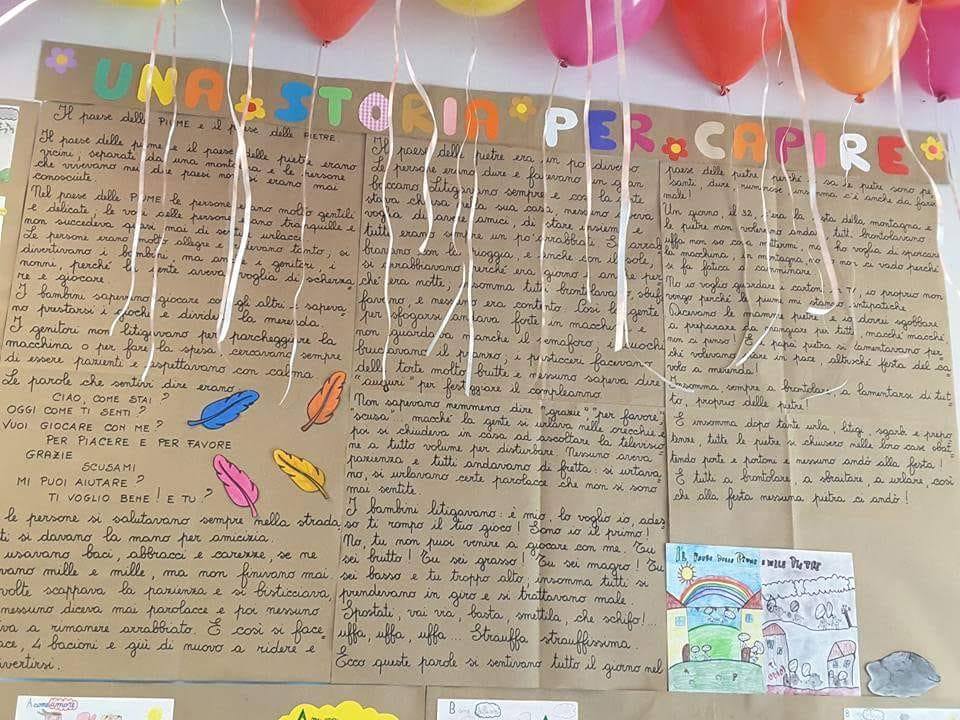 UNA STORIA PER CAPIRE
Il paese delle PIUME e il paese delle PIETRE.
Il paese delle piume e il paese delle pietre erano
vicini, separati da una montagna e le persone
che vivevano nei due paesi non si erano mai
conosciute.
Nel paese delle PIUME le persone erano molto gentili
e delicate, le voci delle persone erano tranquille e
non succedeva quasi mai di sentire urlacci.
Le persone erano molto allegre e ridevano tanto, si
divertivano i bambini, ma anche i genitori, i
nonni, perché la gente aveva voglia di scherza
re e giocare.
I bambini sapevano giocare con gli altri, sapeva
no prestarsi i giochi e dividere la merenda.
I genitori non litigavano per parcheggiare la
macchina o per fare la spesa, cercavano sempre
di essere pazienti e aspettavano con calma.
Le parole che sentivi dire erano
CIAO, COME STAI?
OGGI COME TI SENTI?
VUOI GIOCARE CON ME?
PER PIACERE E PER FAVORE
GRAZIE
SCUSAMI
MI PUOI AIUTARE?
TI VOGLIO BENE! E TU?
le persone si salutavano sempre nella strada,
ti si davano la mano per amicizia.
usavano baci, abbracci e carezze, se ne
vano mille e mille, ma non finivano mai.
volte scappava la pazienza e si bisticciava,
nessuno diceva mai parolacce e poi nessuno
va a rimanere arrabbiato. E così si face
ace, 4 bacioni e giù di nuovo a ridere e
ivertirsi.
Il paese delle pietre era un po' diverso.
Le persone erano dure e facevano un gran
baccano, litigavano sempre e così la gente
stava chiusa nella sua casa, nessuno aveva
voglia di avere amici, di stare insieme e
tutti erano sempre un po' arrabbiati. Si arrab
biavano con la pioggia, e anche con il sole,
si arrabbiavano perché era giorno e anche per
ché era notte, insomma tutti brontolavano, sbuf
favano, e nessuno era contento. Così la gente
per sfogarsi andava forte in macchina e
non guardava neanche il semaforo, i cuochi
bruciavano il pranzo, i pasticceri facevano
delle torte molto brutte e nessuno sapeva dire
"auguri" per festeggiare il compleanno.
Non sapevano nemmeno dire "grazie" "per favore"
"scusa" macché la gente si urlava nelle orecchie e
poi si chiudeva in casa ad ascoltare la televisio
ne a tutto volume per disturbare. Nessuno aveva
pazienza e tutti andavano di fretta: si urtava
no, si urlavano certe parolacce che non si sono
mai sentite.
I bambini litigavano: è mio, lo voglio io, ades
so ti rompo il tuo gioco! Sono io il primo!
No, tu non puoi venire a giocare con me. Tu
sei brutto! Tu sei grasso! Tu sei magro! Tu
sei basso e tu troppo alto, insomma tutti si
prendevano in giro e si trattavano male.
Spostati, vai via, basta, smettila, che schifo!...
uffa, uffa, uffa... Strauffa strauffissima.
Ecco queste parole si sentivano tutto il giorno nel
paese delle pietre perché si sa le pietre sono pe
santi, dure rumorose insomma c'è anche da farsi
male!
Un giorno, il 32, c'era la festa della montagna e
le pietre non volevano andare, tutti brontolavano
uffa non so cosa mettermi, non ho voglia di sporcare
la macchina, in montagna, no io non ci vado perché
si fa fatica a camminare.
No io voglio guardare i cartoni in TV, io proprio non
vengo perché le piume mi stanno antipatiche.
Dicevano le mamme pietre: e io dovrei sgobbare
a preparare da mangiare per tutti macché macché
non ci penso! E i papà pietra si lamentavano per
ché volevano stare in pace altroché festa del sa
volo a merenda!
Insomma sempre a brontolare, a lamentarsi di tut
to, proprio delle pietre!
E insomma dopo tante urla, litigi, sgarbi e prepo
tenze, tutte le pietre si chiusero nelle loro case sbat
tendo porte e portoni e nessuno andò alla festa!
E tutti a brontolare, a sbraitare, a urlare, così
che alla festa nessuna pietra ci andò!
IL PAESE DELLE PIUME E DELLE PIETRE